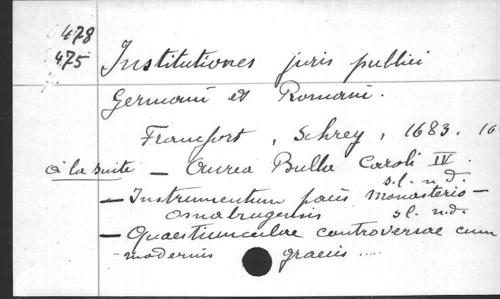 478
475
Institutiones juris publici
Germani et Romani.
Francfort, Schrey, 1683. 16
à la suite — Aurea Bulla Caroli IV.
s.l. n.d.
— Instrumentum pacis Monasterio-
Osnabrugensis s.l. n.d.
— Quaestiunculae controversae cum
modernis graecis .....